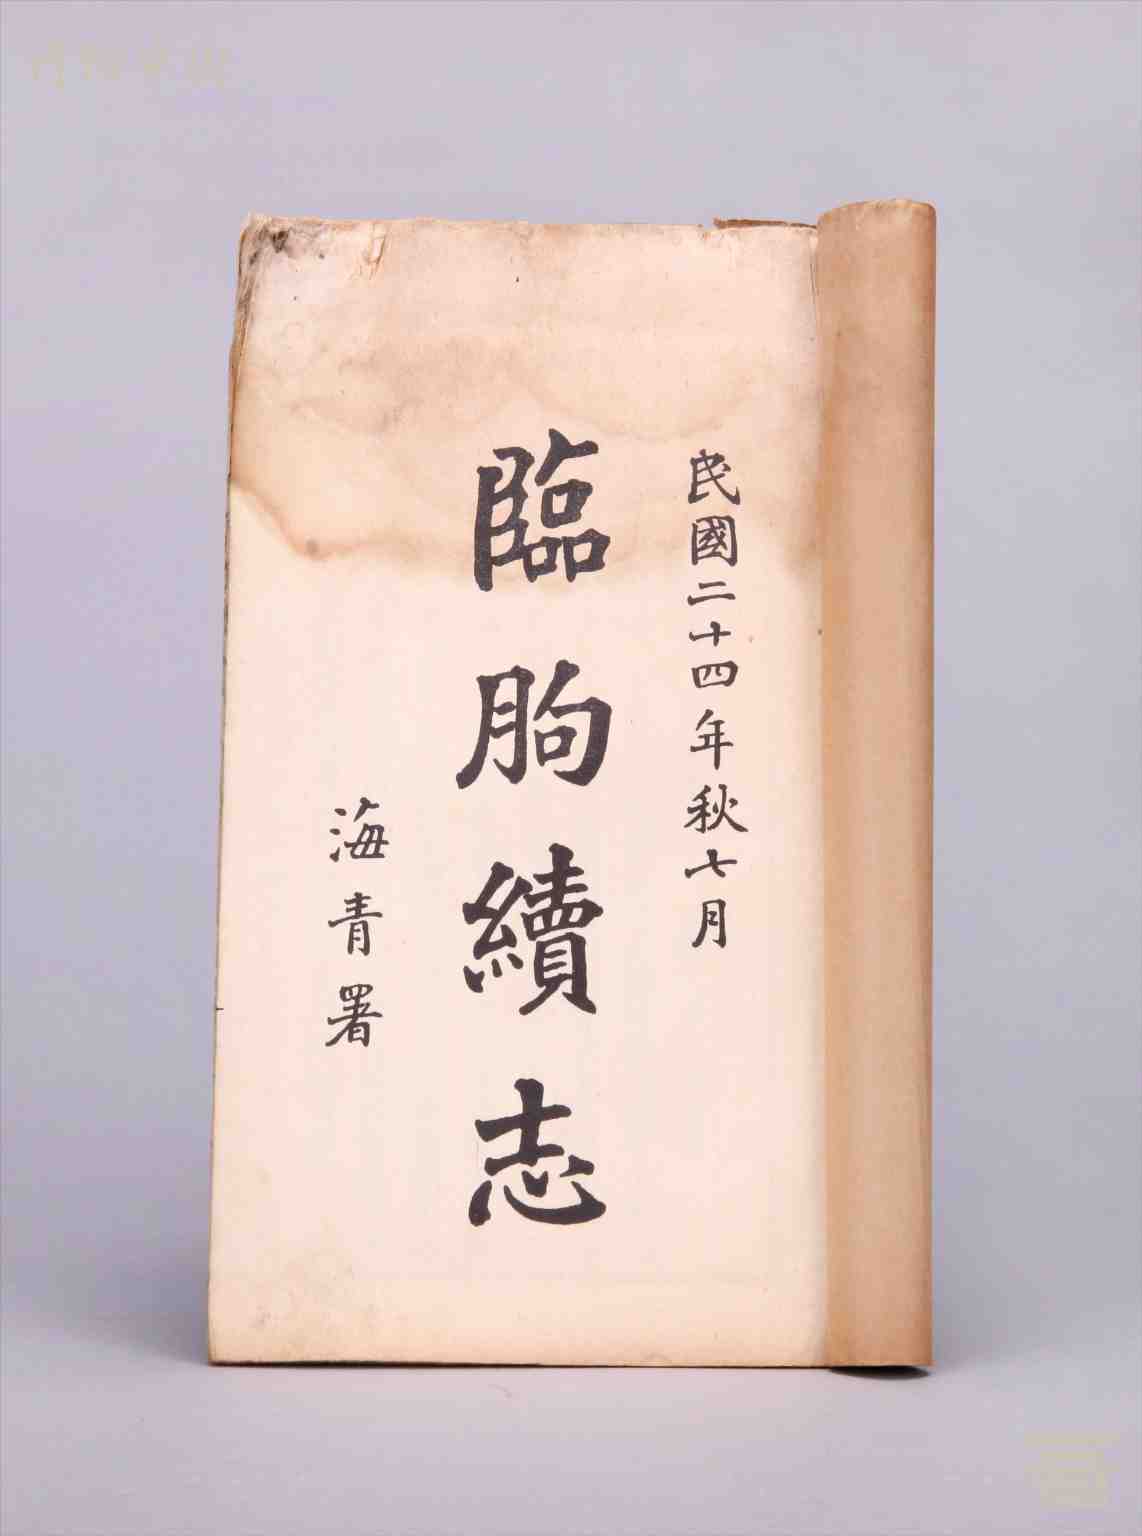 民國二十四年秋七月
臨朐續志
海青署